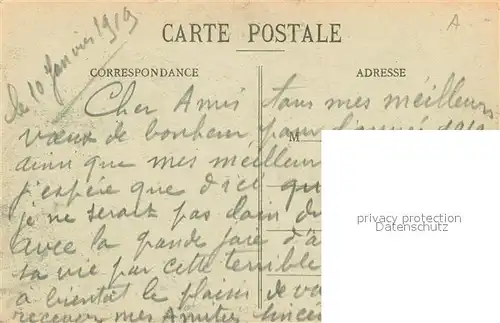 CARTE POSTALE
A
le 10 Janvier 1919
CORRESPONDANCE
ADRESSE
Cher Ami tous mes meilleurs
vœux de bonheur pour l'année 1919
M
ainsi que mes meilleur
j'espère que d'ici qu
je ne serait pas loin du
avec la grande joie d'a
sa vie par cette terrible
à bientôt le plaisir de vo
recevoir mes Amitiés sincè
privacy protection
Datenschutz